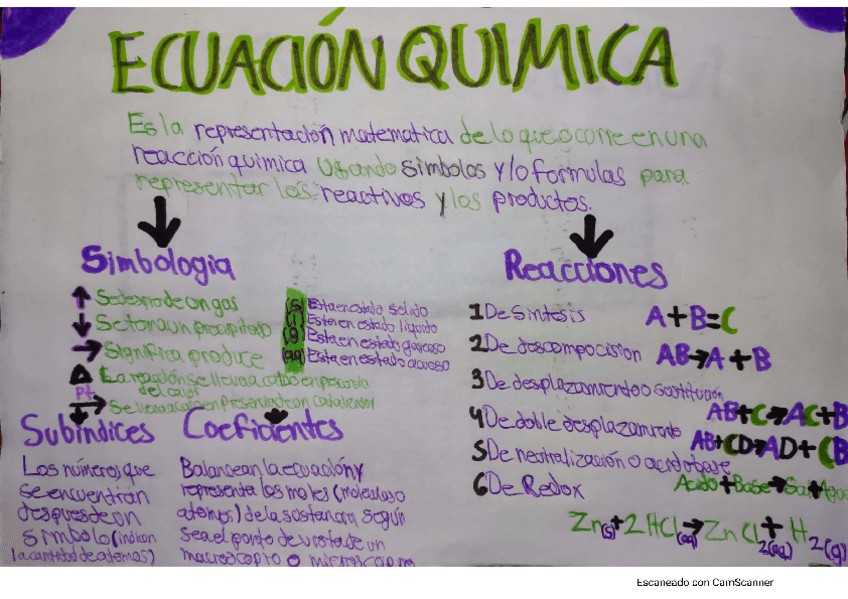 ECUACIÓN QUIMICA
Es la representación matematica de lo que ocurre en una
reacción quimica Usando simbolos y/o formulas para
representar los reactivos y los productos.
Simbologia
↑ Se desprode un gas
↓ Se toma un precipitado
→ Significa produce
△ La reacción se lleva a cabo en presencia
del calor
Pt
→ Se lleva a cabo en presencia de un catalizador
(s) Esta en estado solido
(l) Esta en estado liquido
(g) Esta en estado gaseoso
(aq) Esta en estado acuoso
Subíndices
Los números que
se encuentran
despues de un
simbolo (indican
la cantidad de atomos)
Coeficientes
Balancean la ecuación y
representa los moles (moleculas o
atomos) de la sustancia según
sea el punto de vista de un
macroscopio o microscopio
Reacciones
1 De Sintesis A + B = C
2 De descomposicion AB → A + B
3 De desplazamiento o sustitución
AB + C → AC + B
4 De doble desplazamiento
AB + CD → AD + CB
5 De neutralización o acido base
Acido + Base → Sal + Agua
6 De Redox
Zn(s) + 2HCl(aq) → ZnCl2(aq) + H2(g)
Escaneado con CamScanner